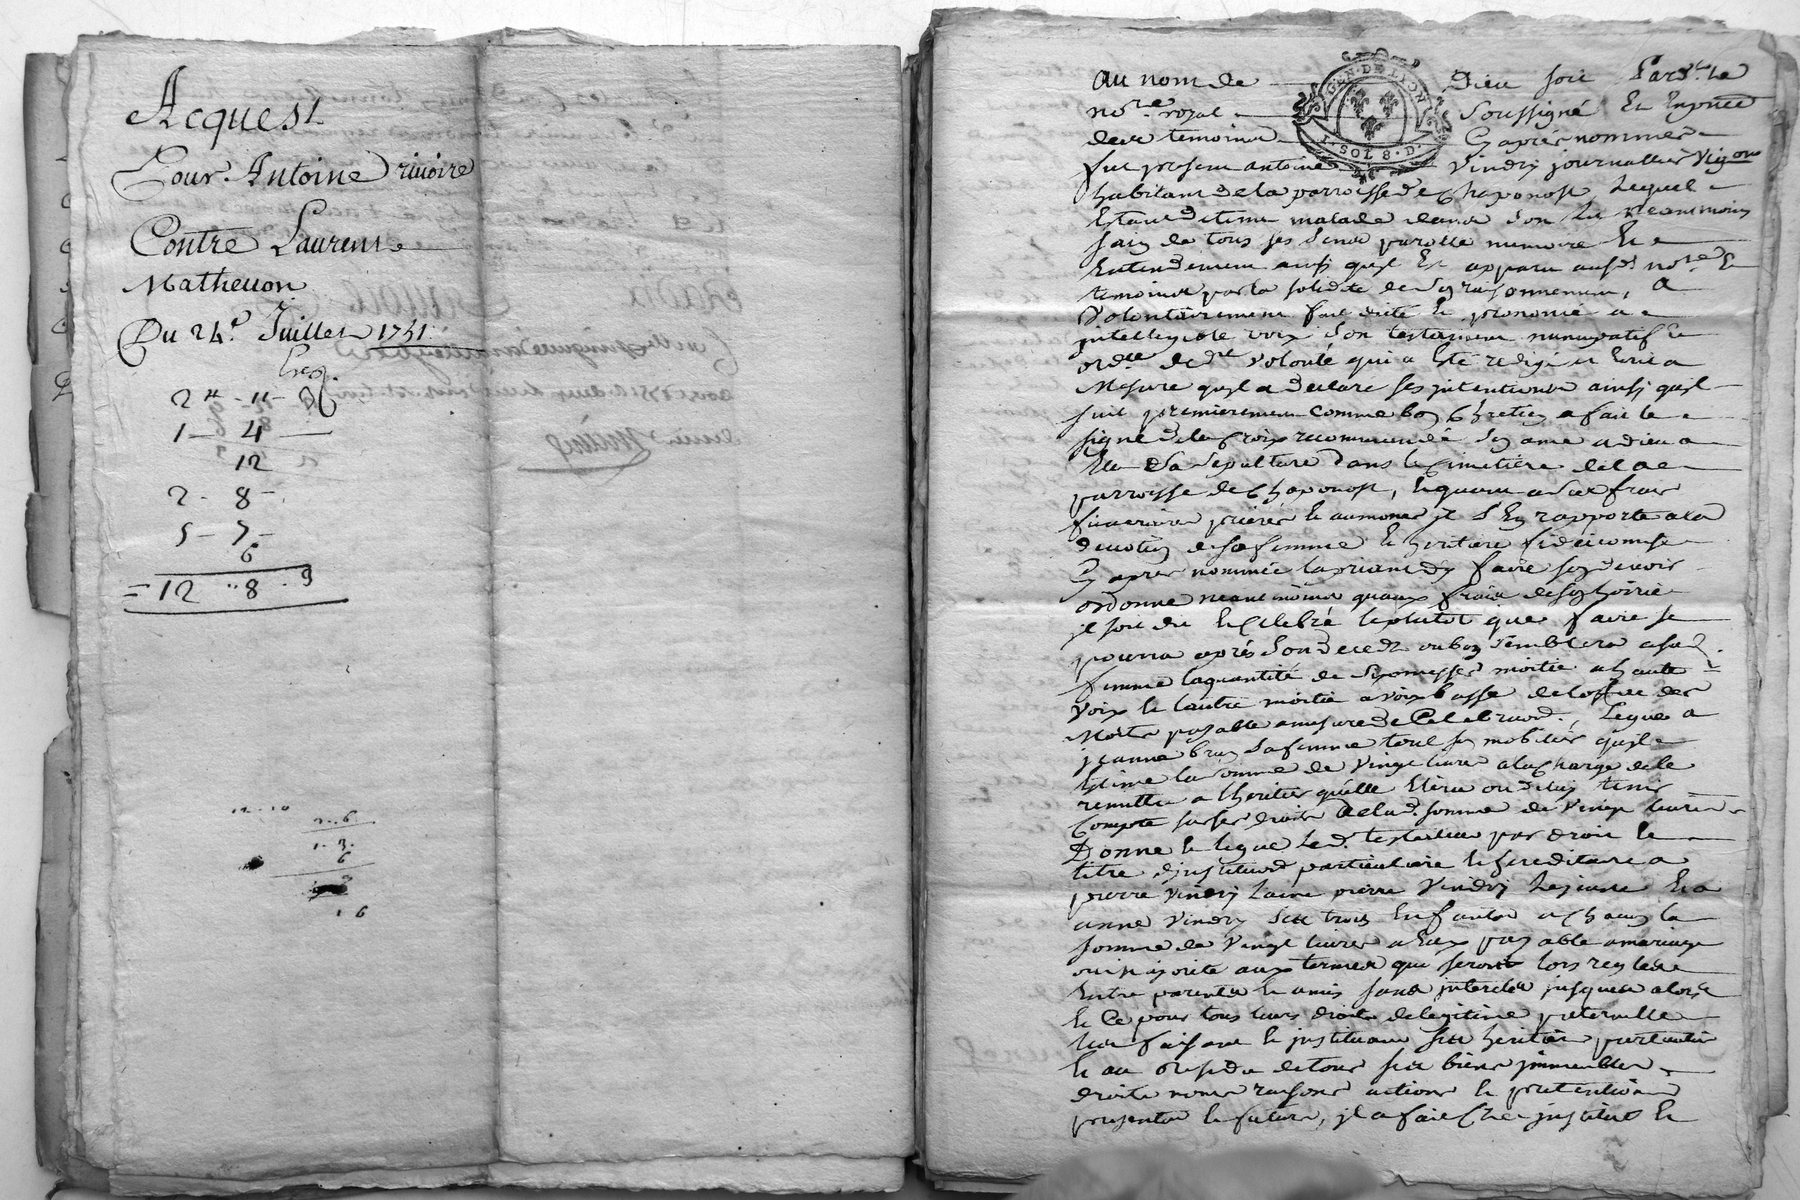 Acquest
Pour Antoine rivoire
Contre Laurent
Matheuon
Du 24e Juillet 1751
2 - 11 -
1 - 4
12
2 - 8 -
5 - 7 -
6
= 12 .. 8 . 9
12 - 10
2 - 6
1 . 3 .
6
1 6
GEN · DE LYON
I · SOL 8 · D ·
au nom de Dieu soit Pardt le
nore royal soussigné Et
deux temoins Cy après nommes
fut present antoine Vindry journallier
habitant de la parroisse de Chaponost Lequel
Estant detenu malade dans son Lit neanmoins
sain de tous ses sens parolle memoire Et
Entendement ainsi quyl Est apparu ausd nore Et
temoins par la solidité de son raisonnement, a
Volontairement fait dicté Et prononcé a
intelligible voix son testament nuncupatif Et
ordre de dre volonté qui a Esté redigé Ecrit a
Mesure quyl a declare ses intentions ainsi quyl
suit premierement comme bon Chretien a fait le
signe de la Croix recommandé son ame a dieu
Elu sa sepulture dans le Cimetiere de la
parroisse de Chaponost, Et quant a ses frais
funeraires prieres Et aumones jl s'En rapporte a la
devotion de sa femme Et heritiere fideicomise
Cy apres nommée la priant dy faire son devoir
ordonne neantmoins quaux frais de son hoirie
jl soit dit Et Celebré le plutot que faire se
pourra après son deced ou bon semblera a sad
femme la quantité de messes moitié a haute
voix Et lautre moitié a voix basse de loffice des
Morts payable a mesure de Celebraon, Legue a
jeanne brun sa femme tout son mobilier quyl
Estime la somme de vingt livres a la Charge de le
remettre a lheritier quelle Elira ou den tenir
Compte sur ses droits de lad. somme de vingt livres
Donne Et legue Led. testateur par droit Et
titre dinstituon particuliere Et hereditaire a
pierre Vindry laine pierre Vindry Lejeune Et a
anne Vindry ses trois Enfants a Chacun la
somme de Vingt livres a Eux payable a mariage
ou majorité aux termes qui seront lors reglées
Entre parents Et amis sans jnterets jusques alors
Et Ce pour tous leurs droits de legitime paternelle
Les faisant Et jnstituant ses heritiers particuliers
Et au residu de tous ses biens jmmeubles
droits noms raisons actions Et pretentions
presents Et futurs, jl a fait Cree jnstitué Et